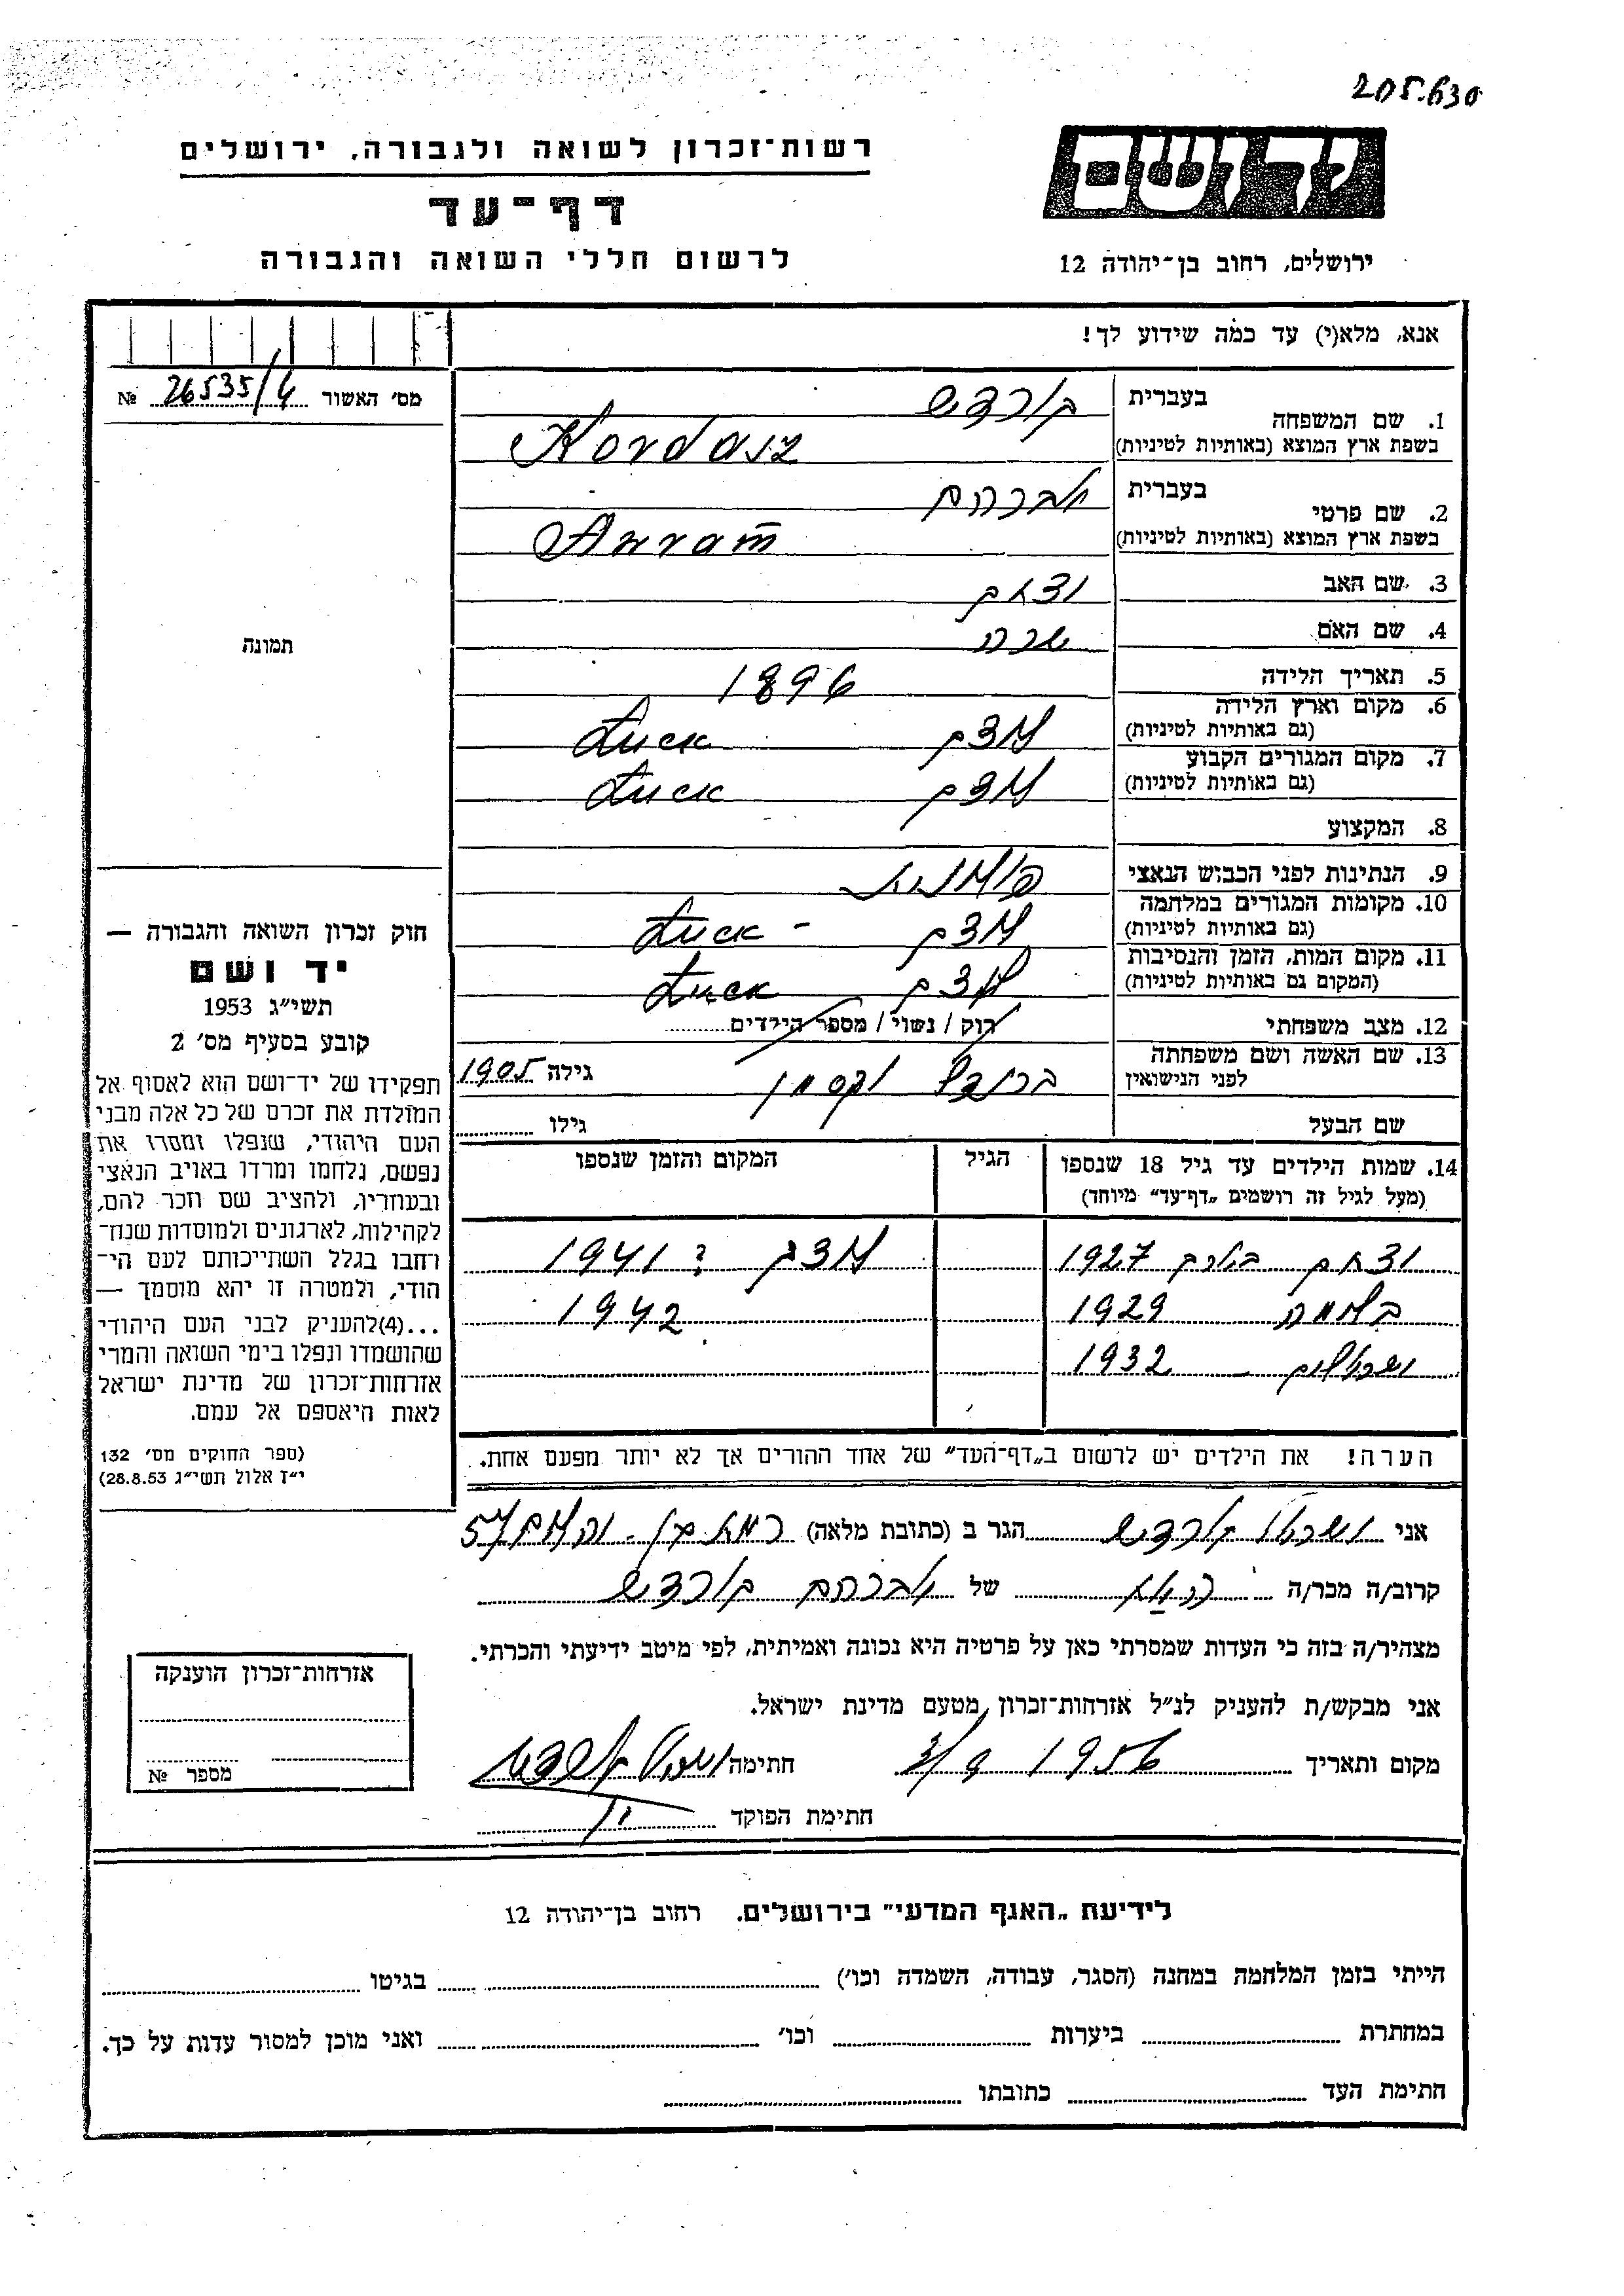 205.630
יד ושם
רשות־זכרון לשואה ולגבורה, ירושלים
דף־עד
לרשום חללי השואה והגבורה
ירושלים, רחוב בן־יהודה 12
אנא, מלא(י) עד כמה שידוע לך!
מס׳ האשור 26535/4 №
תמונה
1. שם המשפחה
בעברית קורדש
בשפת ארץ המוצא (באותיות לטיניות) Kordasz
2. שם פרטי
בעברית אברהם
בשפת ארץ המוצא (באותיות לטיניות) Awram
3. שם האב
4. שם האם שרה
5. תאריך הלידה 1896
6. מקום וארץ הלידה
(גם באותיות לטיניות) Łuck
7. מקום המגורים הקבוע
(גם באותיות לטיניות) Łuck
8. המקצוע
9. הנתינות לפני הכבוש הנאצי פולנית
10. מקומות המגורים במלחמה
(גם באותיות לטיניות) - Łuck
11. מקום המות, הזמן והנסיבות
(המקום גם באותיות לטיניות) Łuck
12. מצב משפחתי רוק / נשוי / מספר הילדים
13. שם האשה ושם משפחתה
לפני הנישואין
גילה 1905
שם הבעל גילו
14. שמות הילדים עד גיל 18 שנספו
(מעל לגיל זה רושמים „דף־עד״ מיוחד)
הגיל
המקום והזמן שנספו
1927 1941
1929 1942
1932
הערה! את הילדים יש לרשום ב„דף־העד״ של אחד ההורים אך לא יותר מפעם אחת.
חוק זכרון השואה והגבורה —
יד ושם
תשי״ג 1953
קובע בסעיף מס׳ 2
תפקידו של יד־ושם הוא לאסוף אל
המולדת את זכרם של כל אלה מבני
העם היהודי, שנפלו ומסרו את
נפשם, נלחמו ומרדו באויב הנאצי
ובעוזריו, ולהציב שם וזכר להם,
לקהילות, לארגונים ולמוסדות שנח־
רחבו בגלל השתייכותם לעם הי־
הודי, ולמטרה זו יהא מוסמך —
...(4)להעניק לבני העם היהודי
שהושמדו ונפלו בימי השואה והמרי
אזרחות־זכרון של מדינת ישראל
לאות היאספם אל עמם.
(ספר החוקים מס׳ 132
י״ז אלול תשי״ג 28.8.53)
אני קורדש הגר ב (כתובת מלאה) 57
קרוב/ה מכר/ה של אברהם קורדש
מצהיר/ה בזה כי העדות שמסרתי כאן על פרטיה היא נכונה ואמיתית, לפי מיטב ידיעתי והכרתי.
אני מבקש/ת להעניק לנ״ל אזרחות־זכרון מטעם מדינת ישראל.
מקום ותאריך 1956 חתימה
חתימת הפוקד
אזרחות־זכרון הוענקה
מספר №
לידיעת „האגף המדעי״ בירושלים. רחוב בן־יהודה 12
הייתי בזמן המלחמה במחנה (הסגר, עבודה, השמדה וכו׳) בגיטו
במחתרת ביערות וכו׳ ואני מוכן למסור עדות על כך.
חתימת העד כתובתו